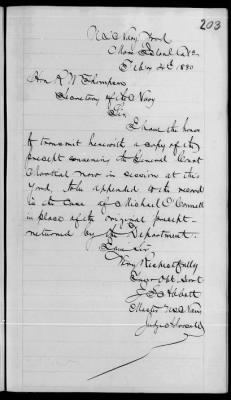 203
U.S. Navy Yard
Mare Island Cal
Feby 4th 1880
Hon R W Thompson
Secretary of the Navy
Sir
I have the honor
to transmit herewith a copy of the
precept convening the General Court
Martial now in session at this
Yard, to be appended to the record
in the case of Michael O'Connell
in place of the original precept
returned by the Department.
I am Sir,
Very Respectfully
Your Obt Servt
Master U.S. Navy
Judge Advocate